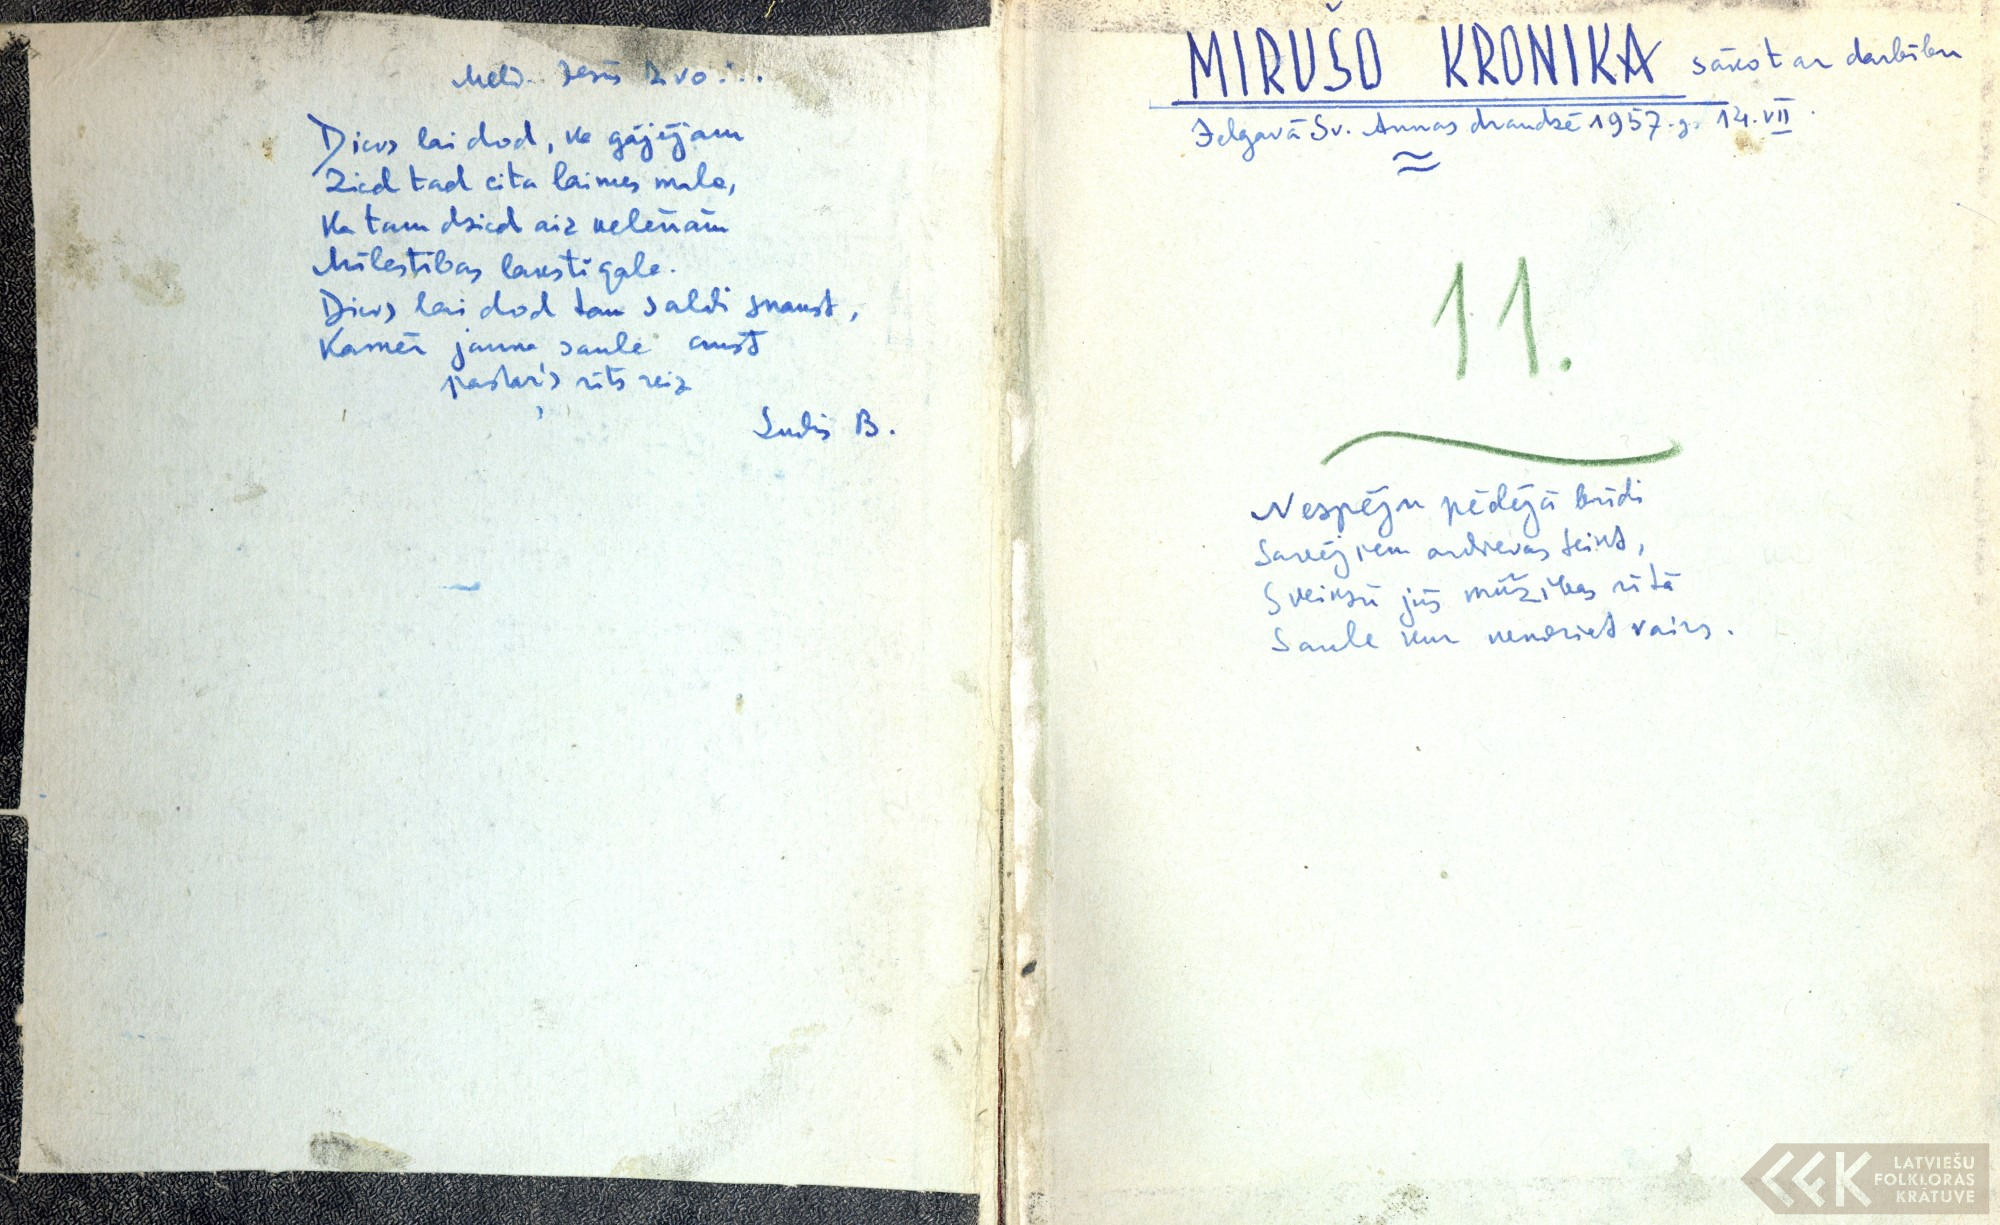 Meld. Jesus dzvo...
Dievs lai dod, ka gājējam
Zied tad cita laimes mala,
Ka tam dzied aiz velēnām
Mīlestības lakstīgala.
Dievs lai dod tam saldi snaust,
Kamēr jauna saule aust
pastar's rīts reiz
Ludis B.
MIRUŠO KRONIKA sākot ar darbību
Jelgavā Sv. Annas draudzē 1957. g. 14. VII
11.
Nespēju pēdējā brīdi
Savējiem ardievas teikt,
Sveikšu jūs mūžības rītā
Saule kur nenoriet vairs.
LATVIEŠU
FOLKLORAS
KRĀTUVE